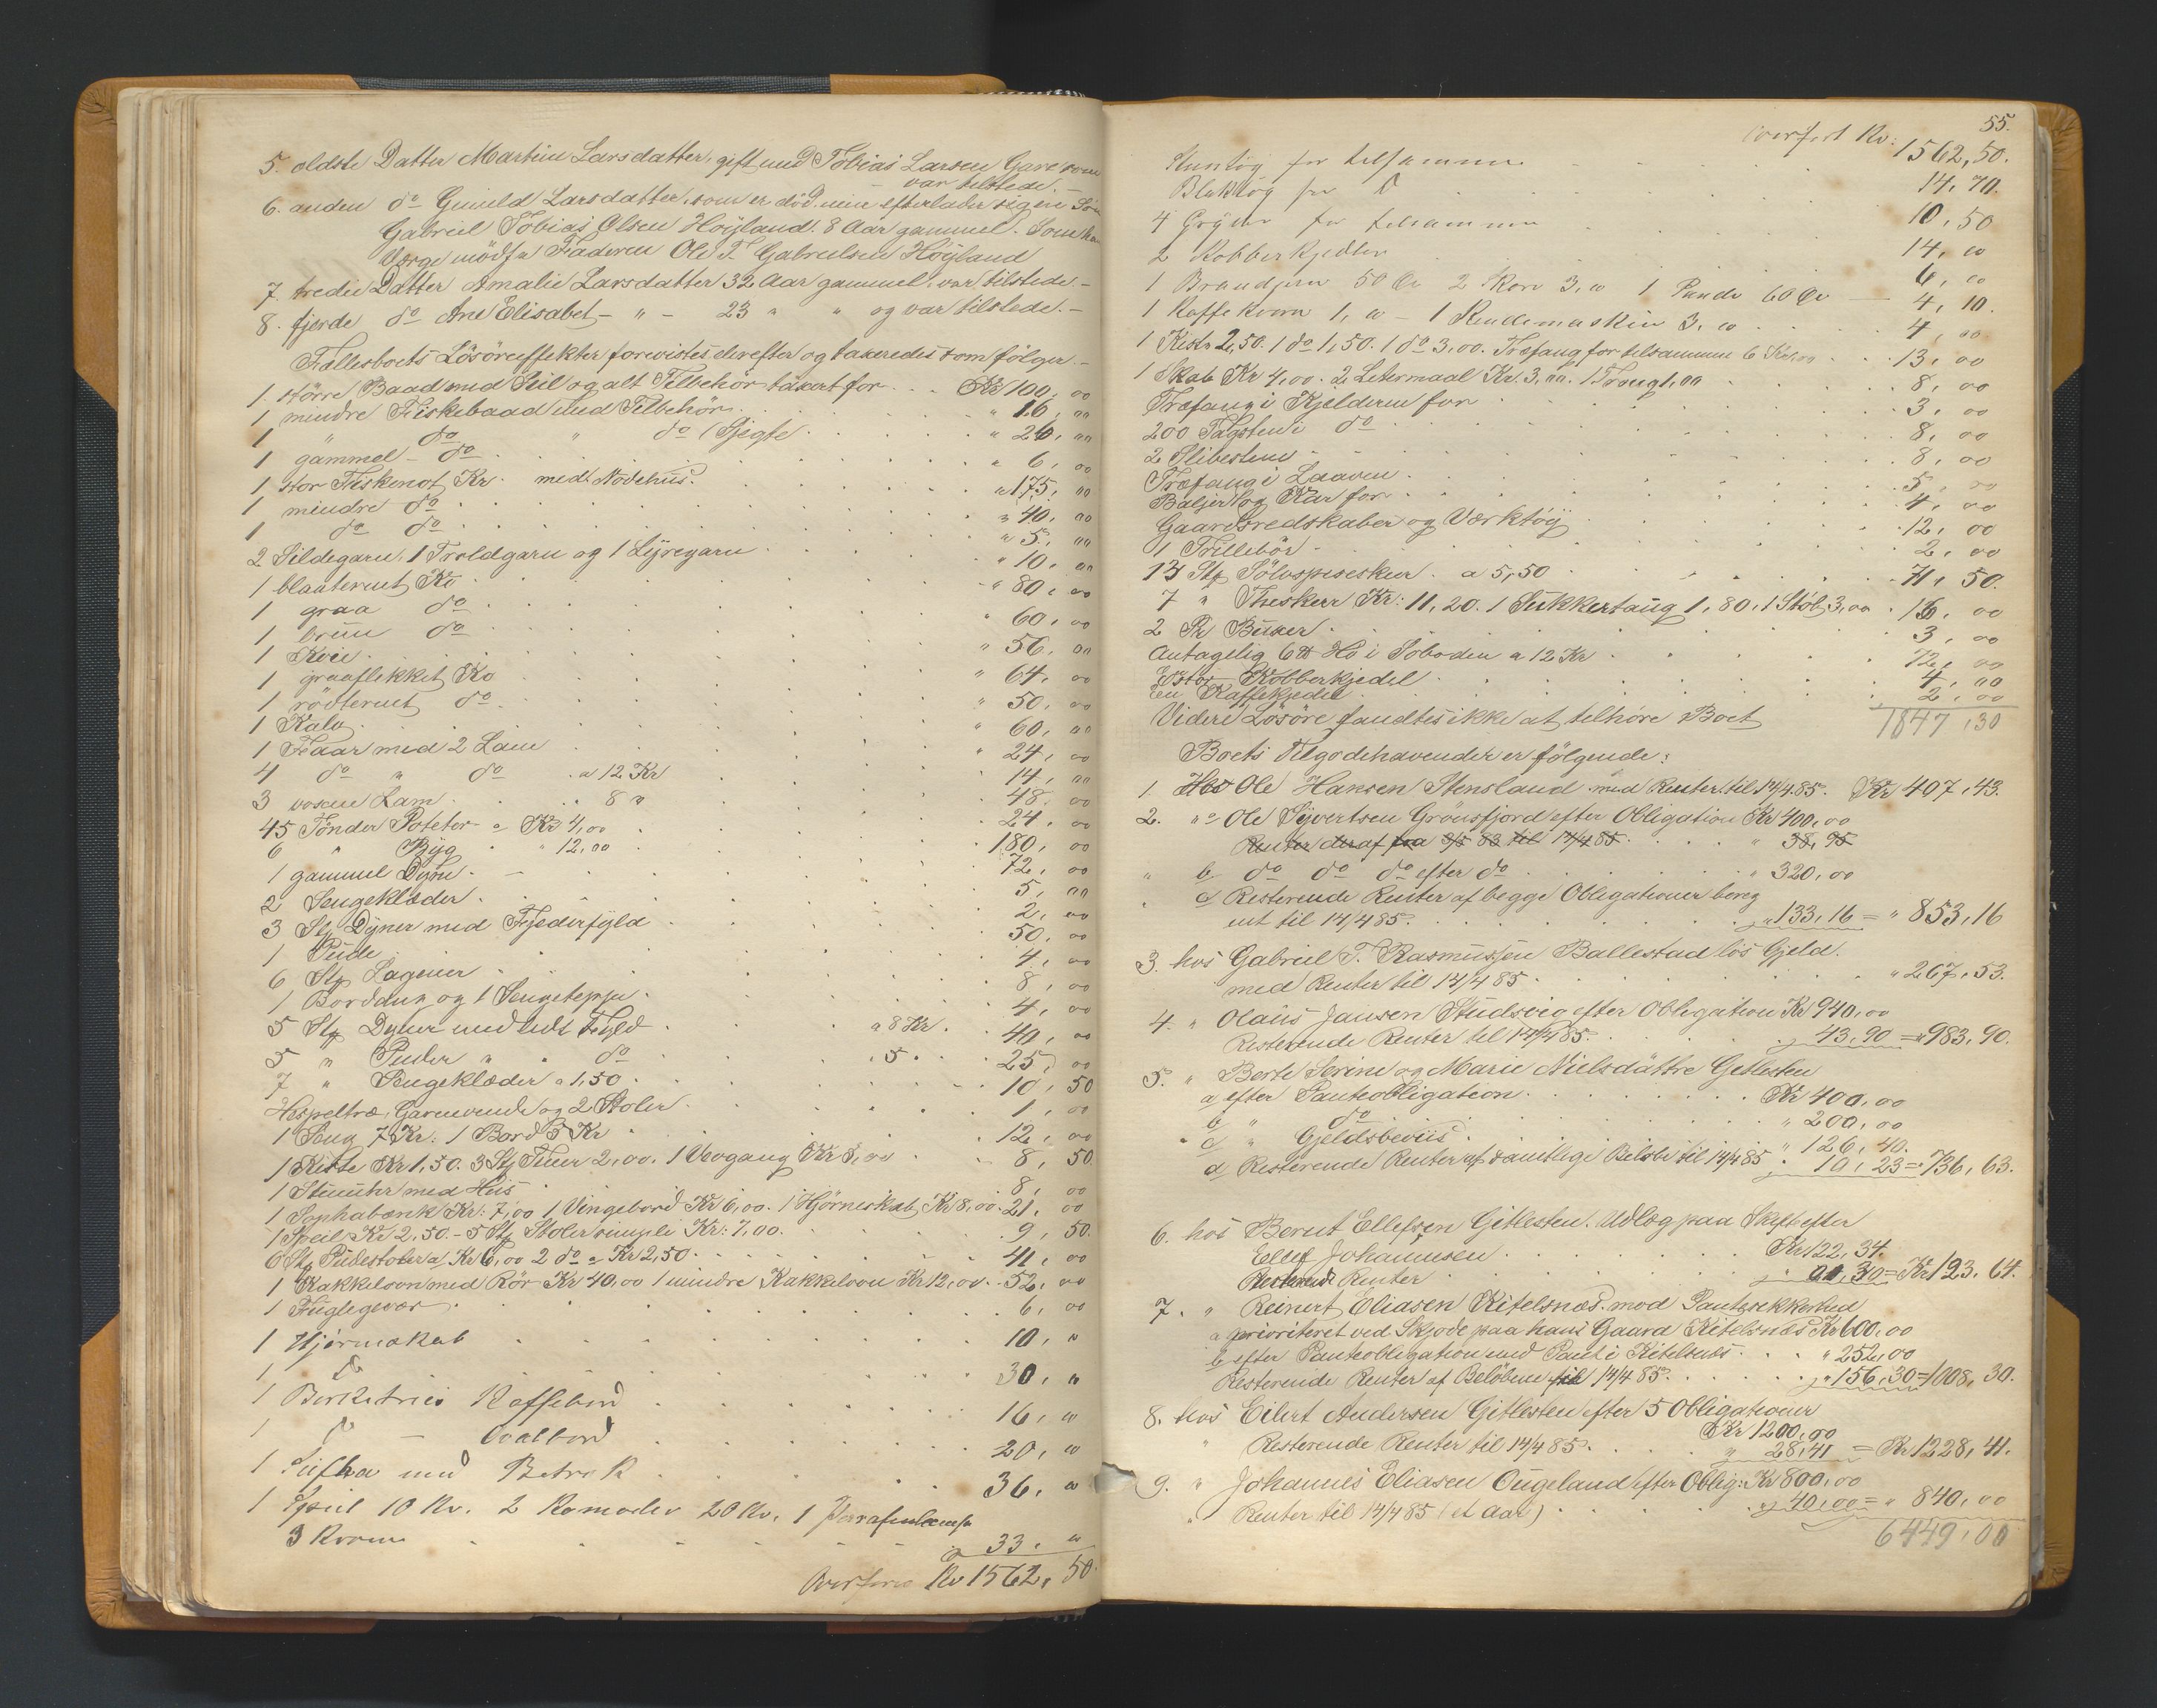 5. oldste Datter Martine Larsdatter, gift med Tobias Larsen Gare som
var tilstede. –
6. anden do Gunild Larsdatter, som er död men efterlader sig en Sön
Gabriel Tobias Olsen Höyland. 8 Aar gammel. Som
Værge mödte Faderen Ole T. Gabrielsen Höyland
7. tredie Datter Amalie Larsdatter 32 Aar gammel, var tilstede –
8. fjerde do Ane Elisabet – " – 23 " " og var tilstede. –
Fællesboets Lösöreeffekter forevistes derefter og taxeredes som fölger. –
1 större Baad med Seil og alt Tilbehör taxert for . . Kr 100, 00
1 mindre Fiskebaad med Tilbehör . " 16, 00
1 " do " do (Sjegte . " 26, 00
1 gammel – do . " 6, 00
1 stor Fiskenot Kr. med Nodehus. " 175, 00
1 mindre do . " 40, 00
1 do do " 5, 00
2 Sildegarn, 1 Troldgarn og 1 Lyregarn . " 10, 00
1 blaaternet Ko . " 80, 00
1 graa do . " 60, 00
1 brun do " 56, 00
1 Kvie . " 64, 00
1 graaflekket Ko " 50, 00
1 rödternet do . " 60, 00
1 Kalv . " 24, 00
1 Faar med 2 Lam 14, 00
4 do " do . a 12 Kr 48. 00
3 voxne Lam . 8 " 24, 00
45 Tönder Poteter a Kr 4,00 . 180, 00
6 " Byg " 12,00 . 72, 00
1 gammel Dyne . 5, 00
2 Sengeklæder . 2, 00
3 Stk Dyner med Fjederfyld 50, 00
1 Pude . 4, 00
6 Stk Lagener . 8, 00
1 Borddug og 1 Sengeteppe . 4, 00
5 Stk Dyner med uldt Fyld . a 8 Kr . 40, 00
5 " Puder " " do . 5 . . 25, 00
7 " Sengeklæder a 1,50 . 10, 50
Hespeltræ, Garnvende og 2 Stoler . 1, 00
1 Seng 7 Kr: 1 Bord 5 Kr . 12, 00
1 Kiste Kr 1,50. 3 Stk Tiner 2,00. 1 Vevgang Kr 5,00 . 8, 50.
1 Stueuhr med Hus . 8, 00
1 Sophabænk Kr: 7,00 1 Vingebord Kr 6,00. 1 Hjörneskab Kr 8,00. 21, 00
1 Speil Kr 2,50. – 5 Stk Stoler simpli Kr: 7,00. 9, 50.
6 Stk Pudestoler a Kr 6,00 2 do a Kr 2,50 . 41, 00
1 Kakkelovn med Rör Kr 40,00 1 mindre Kakkelovn Kr 12,00 . 52, 00
1 Fuglegevær . 6, 00
1 Hjørneskab . 10, 00
1 do 30, 00
1 Birketræs Kaffebord . 16, 00
1 do – Ovalbord . 20, 00
1 Sofha med Betræk . 36. 00
1 Speil 10 Kr. 2 Komoder 20 Kr. 1 Parafinlampe
3 Kroner . 33. 00
Overføres Kr 1562, 50.
55.
Overført Kr: 1562,50.
Stentøg for tilsammen . 14, 70.
Bliktøg for do . 10, 50
4 Gryder for tilsammen . 14, 00
2 Kobberkjedler . 6, 00
1 Brandjern 50 Øre 2 3,00 1 Pande 60 Øre – 4, 10.
1 Kaffekvern 1,00 – 1 Kindemaskin 3,00 . 4, 00
1 Kiste 2,50. 1 do 1,50. 1 do 3,00. Træfang for tilsammen 6 Kr,00 . 13, 00
1 Skab Kr 4,00. 2 Letermaal Kr. 3,00. 1 Troug 1,00 . 8, 00
Træfang i Kjelderen for . 3, 00
200 Tagsten i do . 8, 00
2 Slibestene . 8, 00
Træfang i Laaven . 5, 00
Baljer og Kar for . 4, 00
Gaardsredskaber og Værktöy . 12, 00
1 Trillebör . 2, 00
13 Stk Sölvspiseskeer . a 5,50 . 71, 50.
7 " Theskeer Kr: 11,20. 1 Sukkertang 1,80. 1 Støb 3,00 . 16, 00
2 Pr Buxer . 3, 00
Antagelig 6 Hö i Söboden a 12 Kr . 72, 00
En stor Kobberkjedel . 4, 00
En Kaffekjedel . 2, 00
Videre Lösöre fandtes ikke at tilhöre Boet 1847,30
Boets Tilgodehavender er fölgende:
1. Hos Ole Hansen Stensland med Renter til 14/4 85. Kr 407,43.
2. " a Ole Syvertsen Grönsfjord efter Obligation Kr 400,00
Renter deraf fra 3/5 83 til 14/4 85. . " 38,95
" b do do do efter do . " 320,00
" c Resterende Renter af begge Obligationer bereg
net til 14/4 85. . " 133,16 = " 853,16
3. hos Gabriel T. Rasmussen Ballestad lös Gjeld.
med Renter til 14/4 85 . " 267,53.
4. " Olaus Jansen Studsvig efter Obligation Kr 940,00
Resterende Renter til 14/4 85. . 43,90 = " 983,90.
5. " Berte Serine og Marie Nielsdattre Gitlesten
a efter Panteobligation . Kr 400,00
b " do . " 200,00
c " Gjeldsbeviis . " 126,40.
d Resterende Renter af samtlige Belöb til 14/4 85 . 10,23 = 736,63.
6. hos Bernt Ellefsen Gitlesten. Udlæg paa Skifte efter
Ellef Johannesen . Kr 122,34.
Resterende Renter . 01,30 = Kr 123,64.
7. " Reinert Eliasen Kitelsnæs. mod Pantesikkerhed
a prioriteret ved Skjöde paa hans Gaard Kitelsnæs Kr 600,00
b efter Panteobligation med Pant i Kitelsnæs . " 252,00
Resterende Renter af Belöbene til 14/4 85. . " 156,30 = 1008,30.
8. hos Eilert Andersen Gitlesten efter 5 Obligationer
Kr 1200,00
" Resterende Renter til 14/4 85. . " 28,41 = Kr 1228,41.
9. " Johannes Eliasen Ougeland efter Oblig: Kr 800,00
" Renter til 14/4 85 (et Aar) . " 40,00 = " 840,00
6449,00